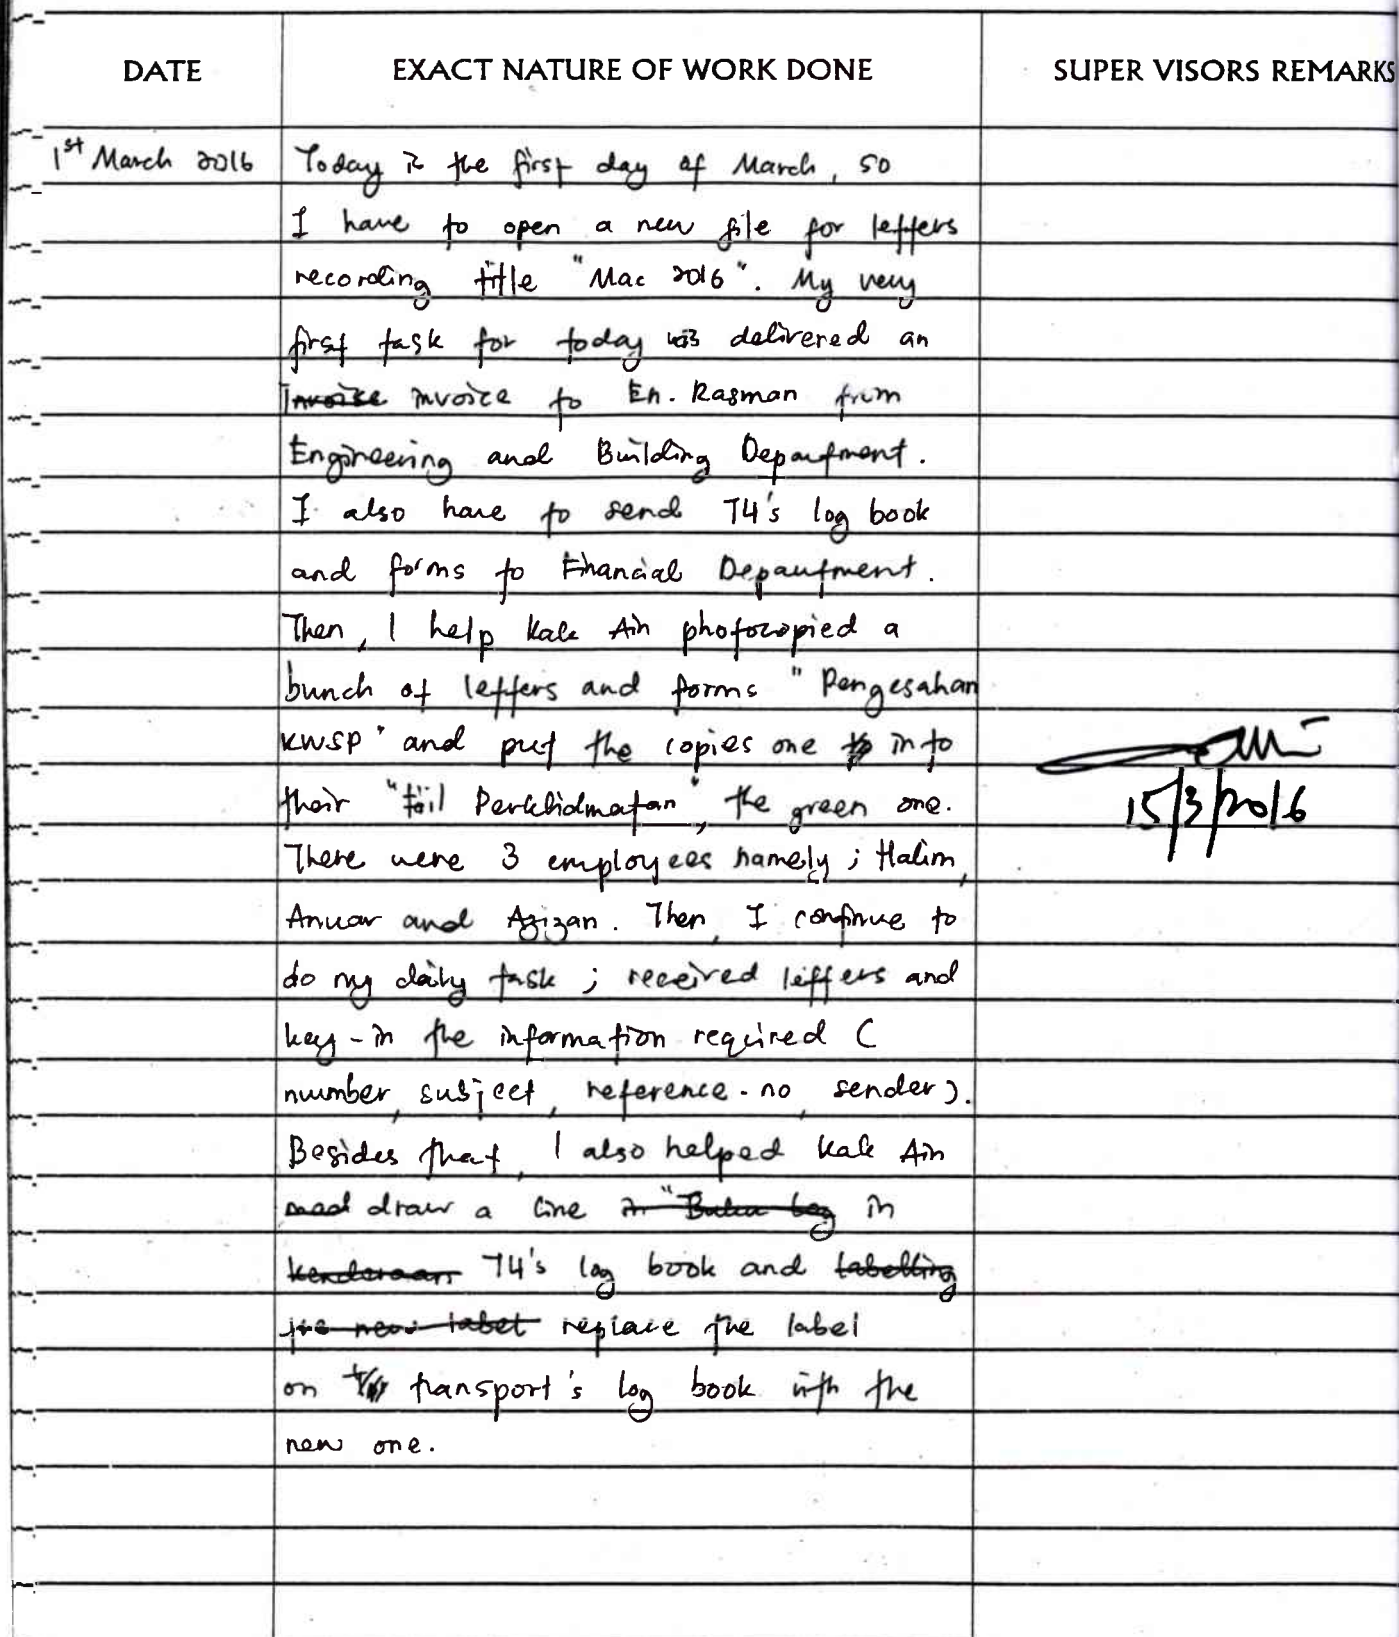 DATE EXACT NATURE OF WORK DONE SUPER VISORS REMARKS
1st March 2016 Today is the first day of March, so
I have to open a new file for letters
recording title "Mac 2016". My very
first task for today was delivered an
Invoice invoice to En. Rasman from
Engineering and Building Department.
I also have to send T4's log book
and forms to Financial Department.
Then, I help Kak Ain photocopied a
bunch of letters and forms "Pengesahan
KWSP" and put the copies one to into
their "fail Perkhidmatan", the green one.
15/3/2016
There were 3 employees namely ; Halim,
Anuar and Azizan. Then, I continue to
do my daily task ; received letters and
key-in the information required (
number, subject, reference.no, sender).
Besides that, I also helped Kak Ain
draw a line in "Buku Log in
kenderaan T4's log book and labelling
new label replace the label
on transport's log book with the
new one.